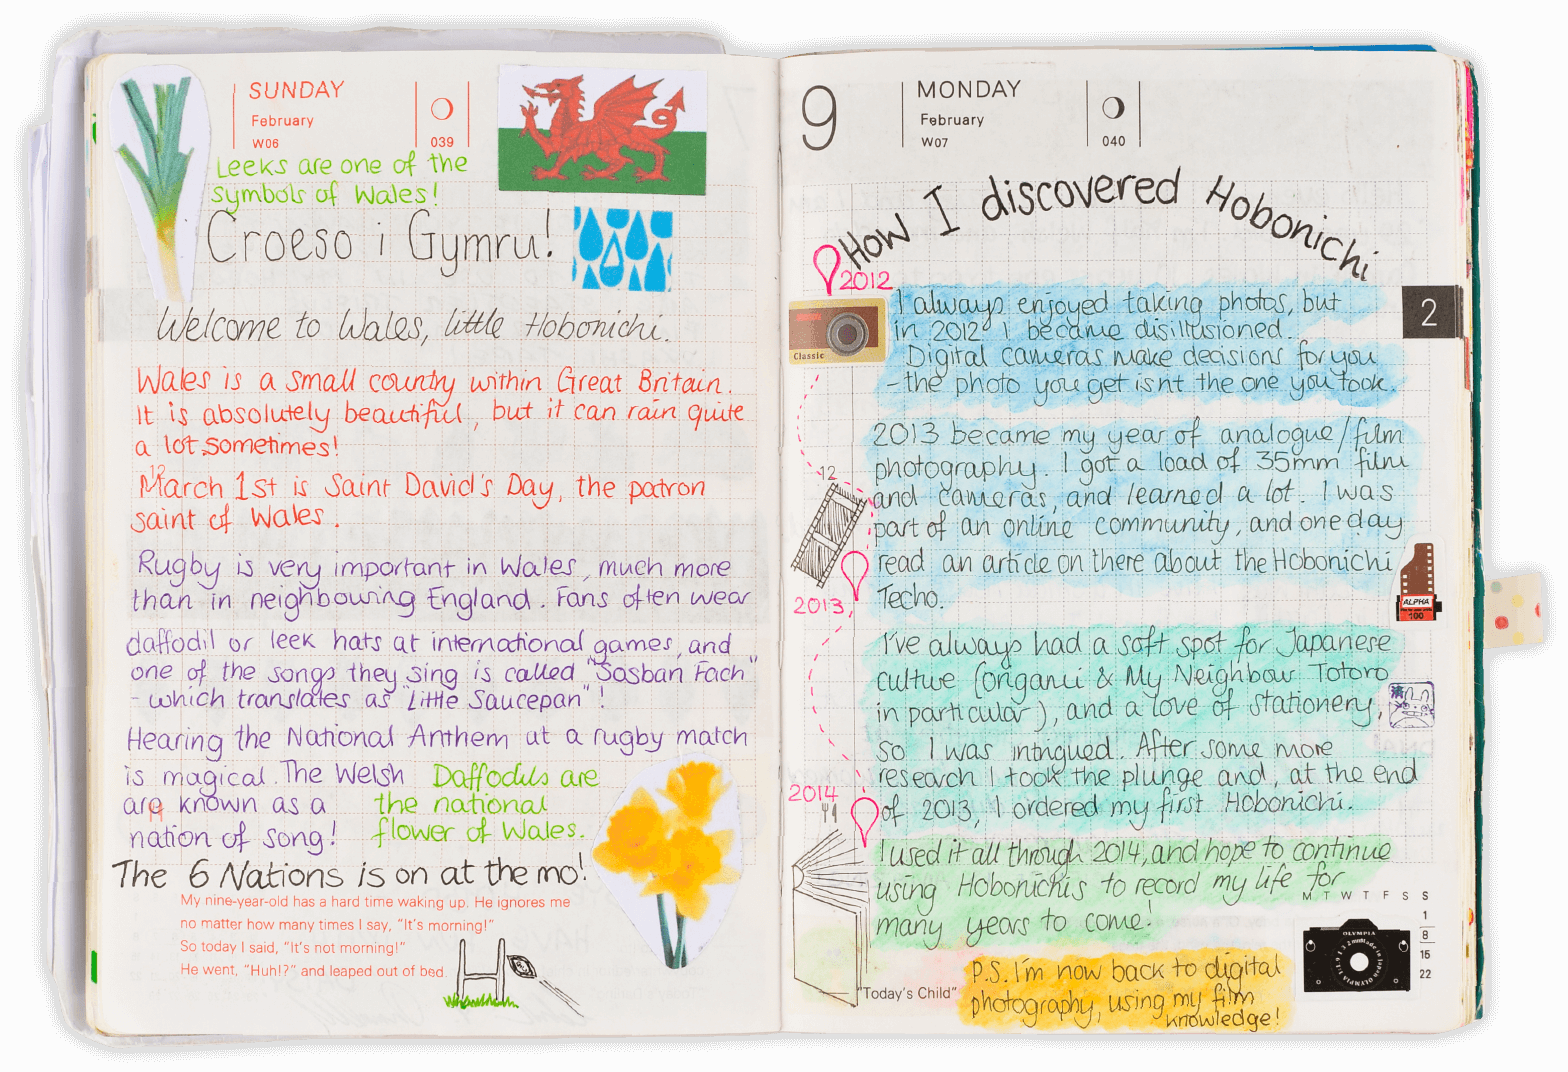 SUNDAY
February
W06
039
Leeks are one of the
symbols of Wales!
Croeso i Gymru!
Welcome to Wales, little Hobonichi.
Wales is a small country within Great Britain.
It is absolutely beautiful, but it can rain quite
a lot sometimes!
12
March 1st is Saint David's Day, the patron
saint of Wales.
Rugby is very important in Wales, much more
than in neighbouring England. Fans often wear
daffodil or leek hats at international games, and
one of the songs they sing is called "Sosban Fach"
- which translates as "Little Saucepan"!
Hearing the National Anthem at a rugby match
is magical. The Welsh
are known as a
nation of song!
Daffodils are
the national
flower of Wales.
The 6 Nations is on at the mo!
My nine-year-old has a hard time waking up. He ignores me
no matter how many times I say, "It's morning!"
So today I said, "It's not morning!"
He went, "Huh!?" and leaped out of bed.
9
MONDAY
February
W07
040
How I discovered Hobonichi
2012
Classic
2
I always enjoyed taking photos, but
in 2012 I became disillusioned.
Digital cameras make decisions for you
- the photo you get isnt the one you took.
2013 became my year of analogue/film
photography. I got a load of 35mm film
12
and cameras, and learned a lot. I was
part of an online community, and one day
read an article on there about the Hobonichi
Techo.
2013
ALPHA
100
I've always had a soft spot for Japanese
culture (origami & My Neighbour Totoro
in particular), and a love of stationery,
so I was intrigued. After some more
research I took the plunge and, at the end
of 2013, I ordered my first Hobonichi.
2014
I used it all through 2014, and hope to continue
using Hobonichis to record my life for
many years to come!
M T W T F S S
1
8
15
22
OLYMPIA
"Today's Child"
P.S. I'm now back to digital
photography, using my film
knowledge!